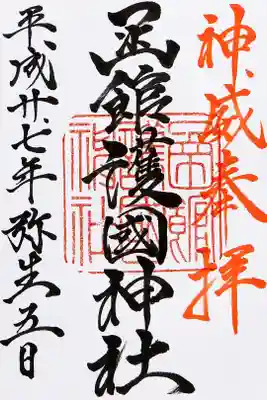 神威奉拝
函館護國神社
平成廿七年弥生五日